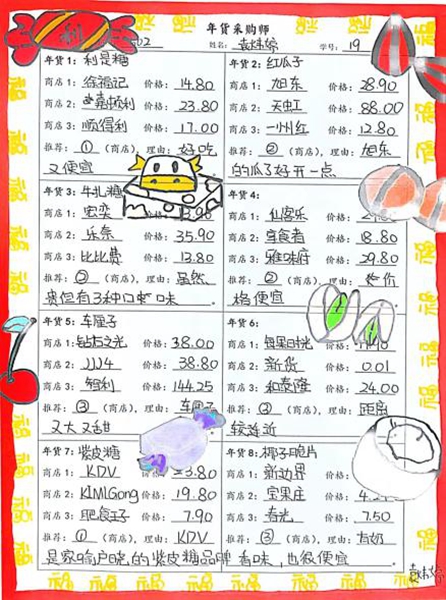 利
年货采购师
02 姓名: 学号: 19
年货1: 利是糖
商店1: 徐福记 价格: 14.80
商店2: 嘉顿利 价格: 23.80
商店3: 顺得利 价格: 17.00
推荐: ① (商店), 理由: 好吃
又便宜
年货2: 红瓜子
商店1: 旭东 价格: 28.90
商店2: 价格: 88.00
商店3: 一州红 价格: 12.80
推荐: ② (商店), 理由: 旭东
的瓜子好开一点
年货3: 牛扎糖
商店1: 宏奕
商店2: 乐奈 价格: 35.90
商店3: 比比赞 价格: 13.80
推荐: ② (商店), 理由: 虽然
贵但有3种口味
年货4:
商店1: 仙客乐 价格:
商店2: 享食者 价格: 18.80
商店3: 雅味府 价格: 29.80
推荐: ② (商店), 理由: 价
格便宜
年货5: 车厘子
商店1: 钻石之光 价格: 38.00
商店2: JJJ4 价格: 38.80
商店3: 智利 价格: 144.25
推荐: ③ (商店), 理由: 车厘子
又大又甜
年货6:
商店1: 坚果时光
商店2: 新货 价格: 0.01
商店3: 和泰隆 价格: 24.00
推荐: ③ (商店), 理由: 距离
较近
年货7: 紫皮糖
商店1: KDV 价格: 3.80
商店2: KIMIGong 价格: 19.80
商店3: 肥食王子 价格: 7.90
推荐: ① (商店), 理由: KDV
是家喻户晓的紫皮糖品牌
年货8: 椰子脆片
商店1: 新边界 价格:
商店2: 宝果庄 价格:
商店3: 春光 价格: 7.50
推荐: ③ (商店), 理由: 有奶
香味,也很便宜
福